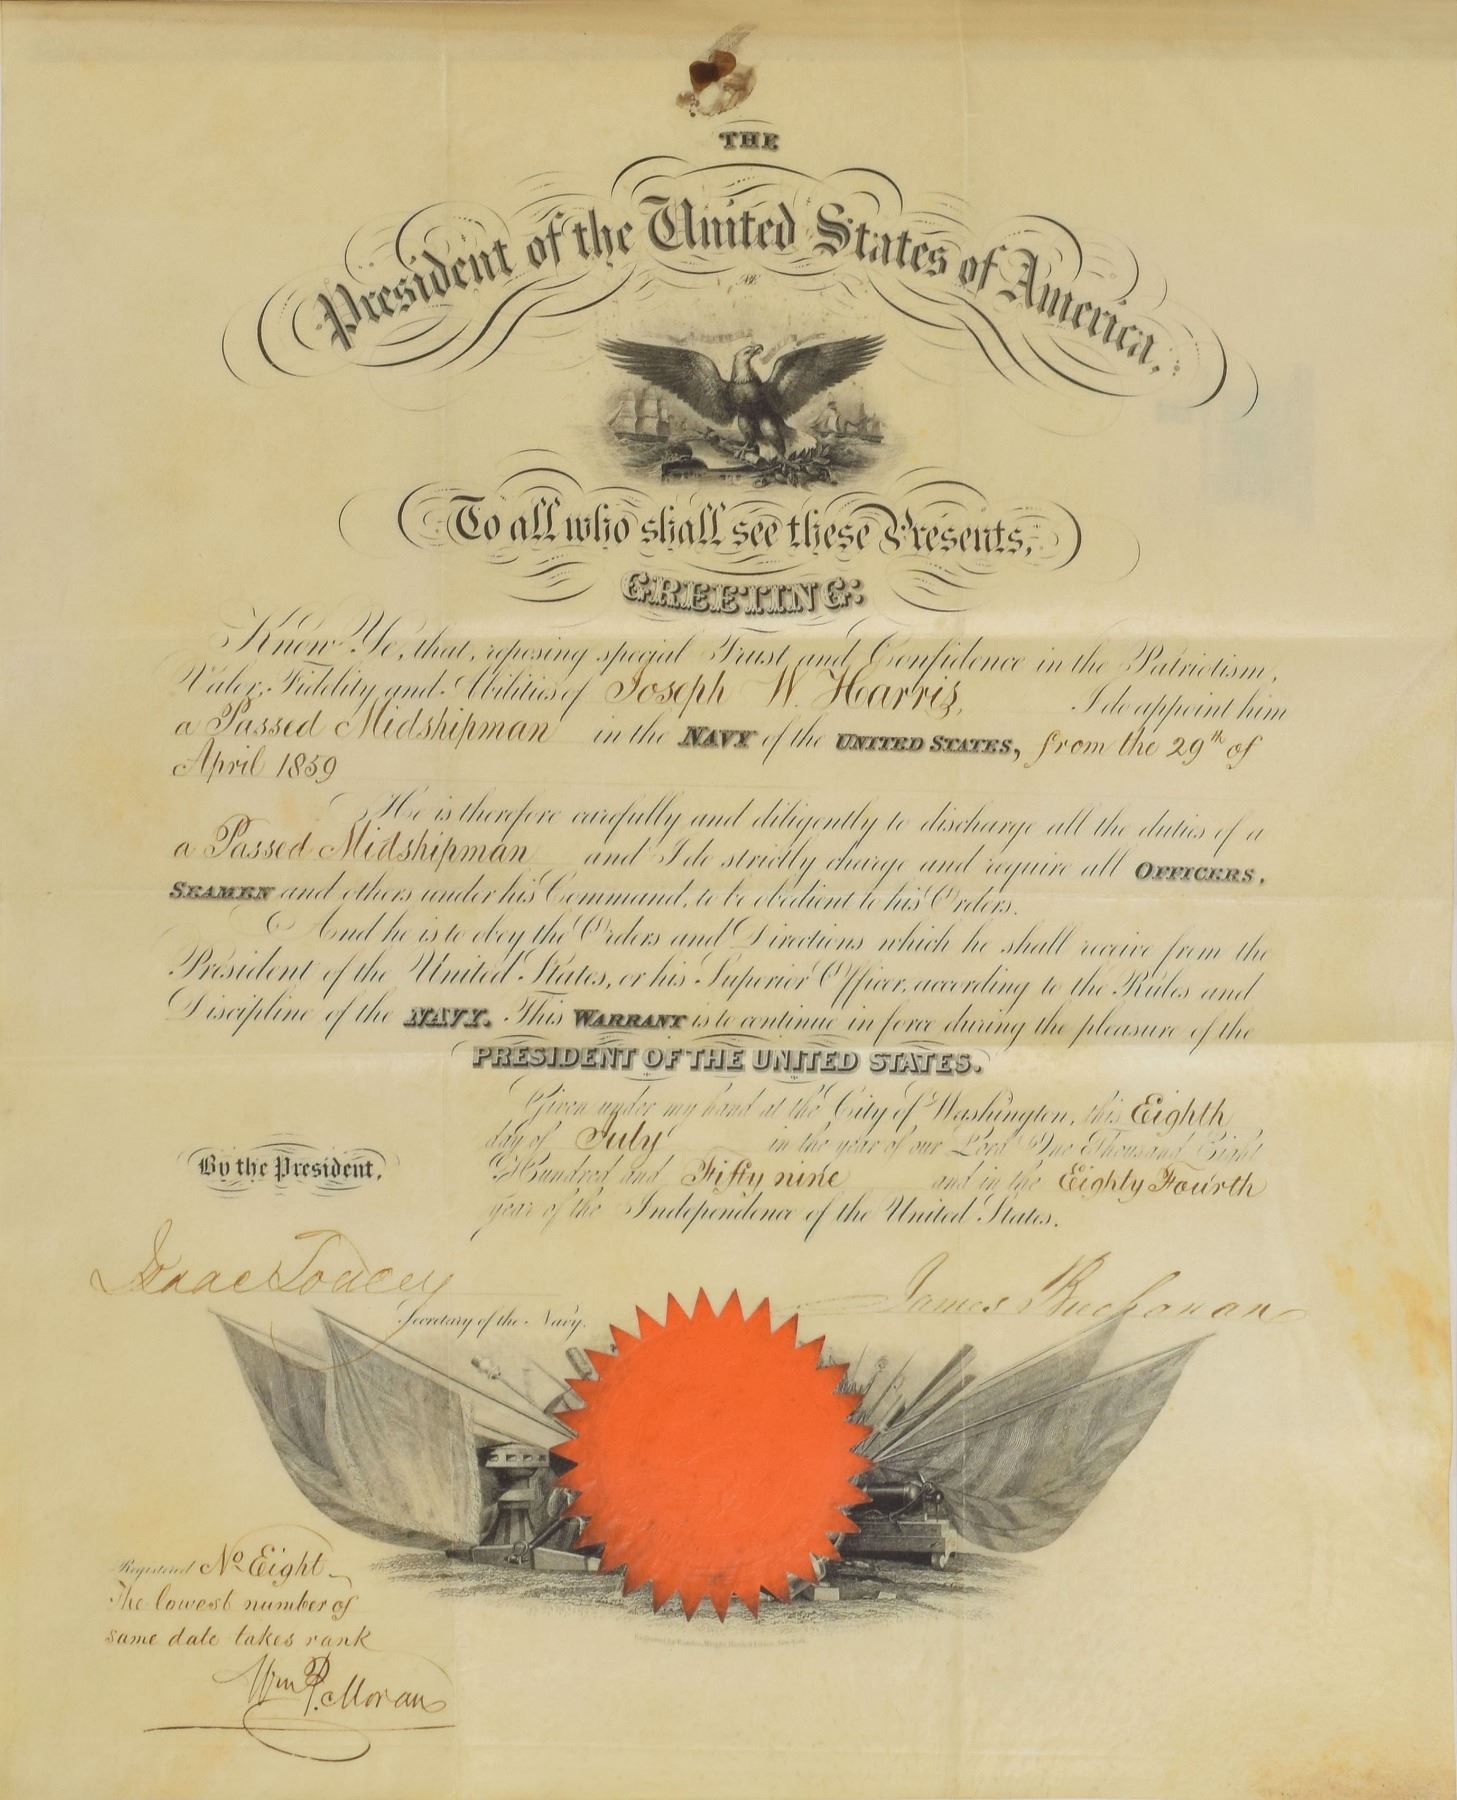 THE
President of the United States of America,
To all who shall see these Presents,
GREETING:
Know Ye, that, reposing special Trust and Confidence in the Patriotism,
Valor, Fidelity and Abilities of Joseph W. Harris, I do appoint him
a Passed Midshipman in the NAVY of the UNITED STATES, from the 29th of
April 1859
He is therefore carefully and diligently to discharge all the duties of a
a Passed Midshipman and I do strictly charge and require all OFFICERS,
SEAMEN and others under his Command, to be obedient to his Orders.
And he is to obey the Orders and Directions which he shall receive from the
President of the United States, or his Superior Officer, according to the Rules and
Discipline of the NAVY. This WARRANT is to continue in force during the pleasure of the
PRESIDENT OF THE UNITED STATES.
Given under my hand at the City of Washington, this Eighth
day of July in the year of our Lord One Thousand Eight
Hundred and Fifty nine and in the Eighty Fourth
year of the Independence of the United States.
By the President,
Isaac Toucey
Secretary of the Navy.
James Buchanan
Registered No Eight
The lowest number of
same date takes rank
Wm P. Moran